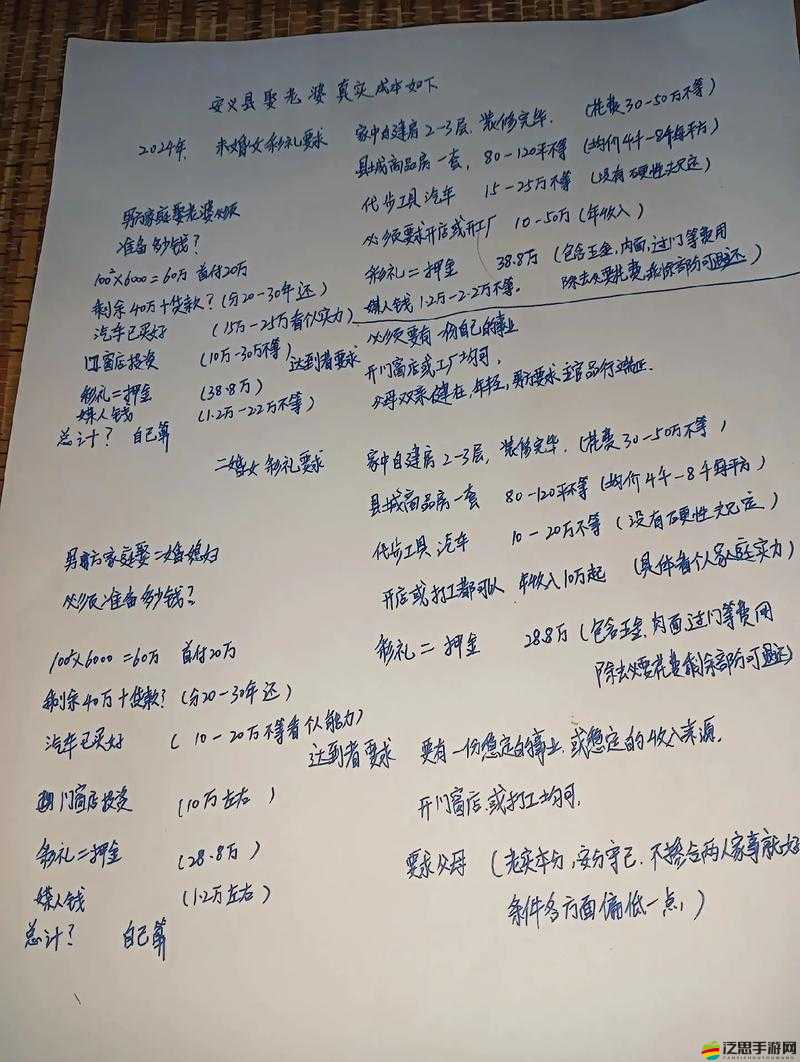 安义县娶老婆真实成本如下
2024年. 未婚女彩礼要求
家中自建房2-3层, 装修完毕. (花费30-50万不等)
县城商品房一套, 80-120平不等 (均价4千-8千每平方)
代步工具汽车 15-25万不等 (没有硬性规定)
必须要求开店或开工厂 10-50万 (年收入)
彩礼=押金 38.8万 (包含五金, 内面, 过门等费用
除去必要花费, 剩余部分可退还)
媒人钱 1.2万-2.2万不等.
男方家庭娶老婆必须
准备多少钱?
100²×6000=60万 首付20万
剩余40万+贷款? (分20-30年还)
汽车已买好 (15万-25万看个人实力)
门窗店投资 (10万-30万不等)
彩礼=押金 (38.8万)
媒人钱 (1.2万-2.2万不等)
总计? 自己算
达到者要求
必须要有一份自己的事业
开门窗店或工厂均可.
父母双亲健在, 年轻, 男方要求五官品行端正.
二婚女彩礼要求
家中自建房2-3层, 装修完毕. (花费30-50万不等)
县城商品房一套 80-120平不等 (均价4千-8千每平方)
代步工具汽车 10-20万不等 (没有硬性规定)
开店或打工都可以 年收入10万起 (具体看个人家庭实力)
彩礼=押金 28.8万 (包含五金, 内面, 过门等费用
除去必要花费剩余部分可退还)
男方家庭娶二婚媳妇
必须准备多少钱?
100²×6000=60万 首付20万
剩余40万+贷款? (分20-30年还)
汽车已买好 (10-20万不等看个人能力)
门窗店投资 (10万左右)
彩礼=押金 (28.8万)
媒人钱 (1.2万左右)
总计? 自己算
达到者要求 要有一份稳定的事业, 或稳定的收入来源.
开门窗店, 或打工均可.
要求父母 (老实本分, 安分守己. 不掺合两人家事就好
条件各方面偏低一点.)
泛思手游网